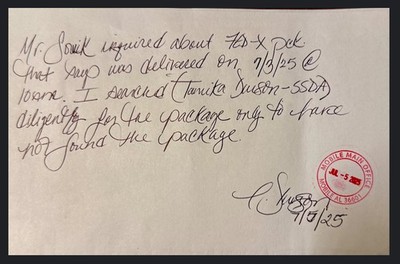 Mr. Sonik inquired about FED-X pck
that says was delivered on 7/3/25 @
10am. I searched (Tamika Dawson-SSDA)
diligently for the package only to have
not found the package
MOBILE MAIN OFFICE
JUL - 5 2025
MOBILE AL 36601
7/5/25